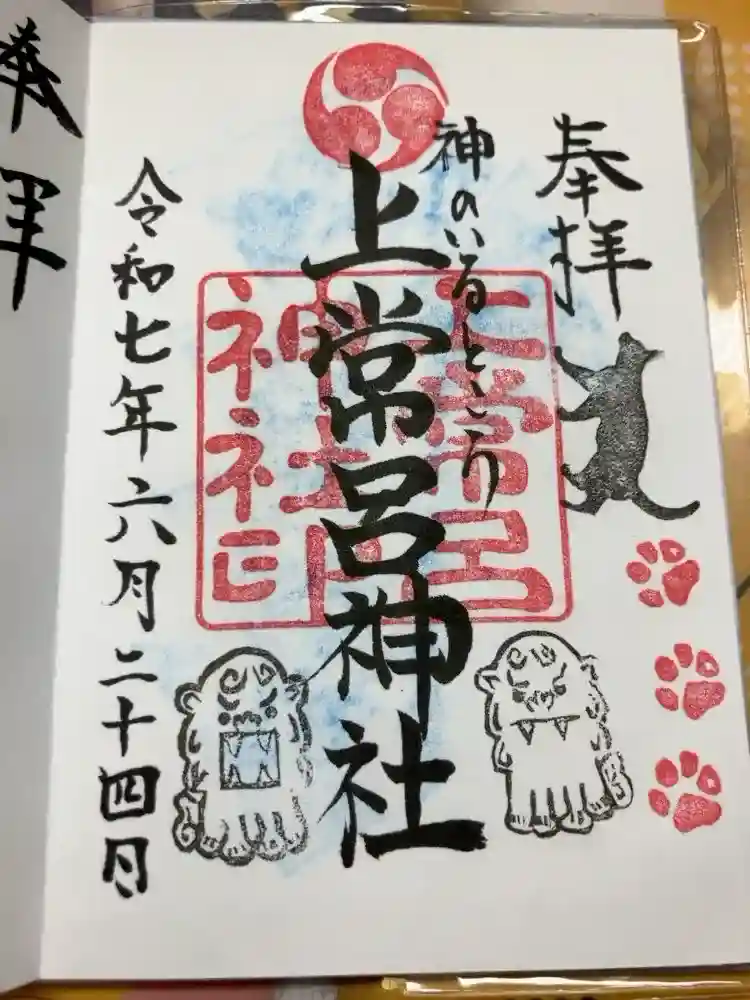 奉拝
神のいるところ
上常呂神社
上常呂神社印
令和七年六月二十四日
奉拝